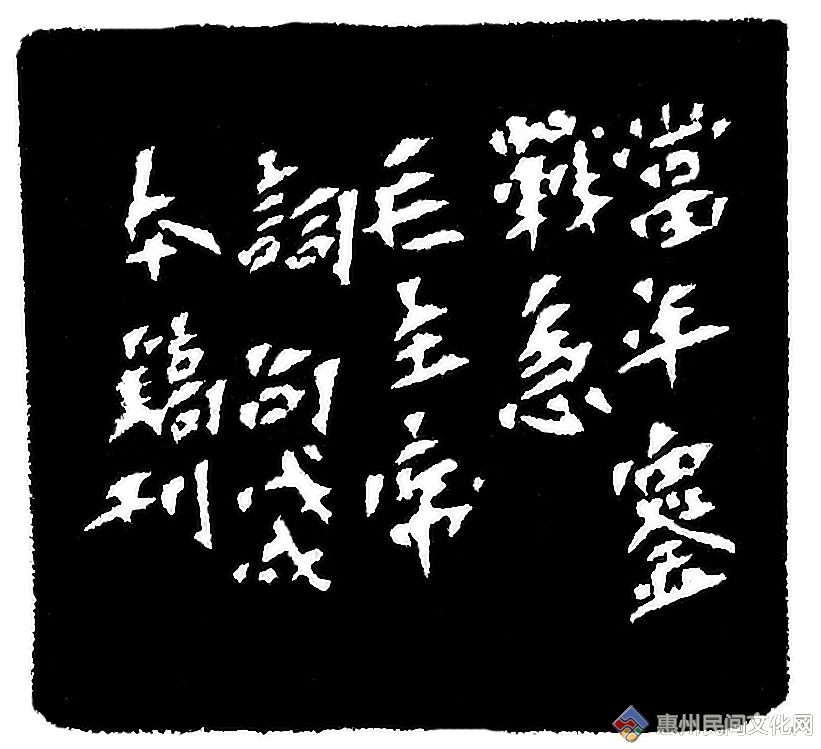 當年鏖
戰急
毛主席
詞句戊戌
本刊
惠州民间文化网